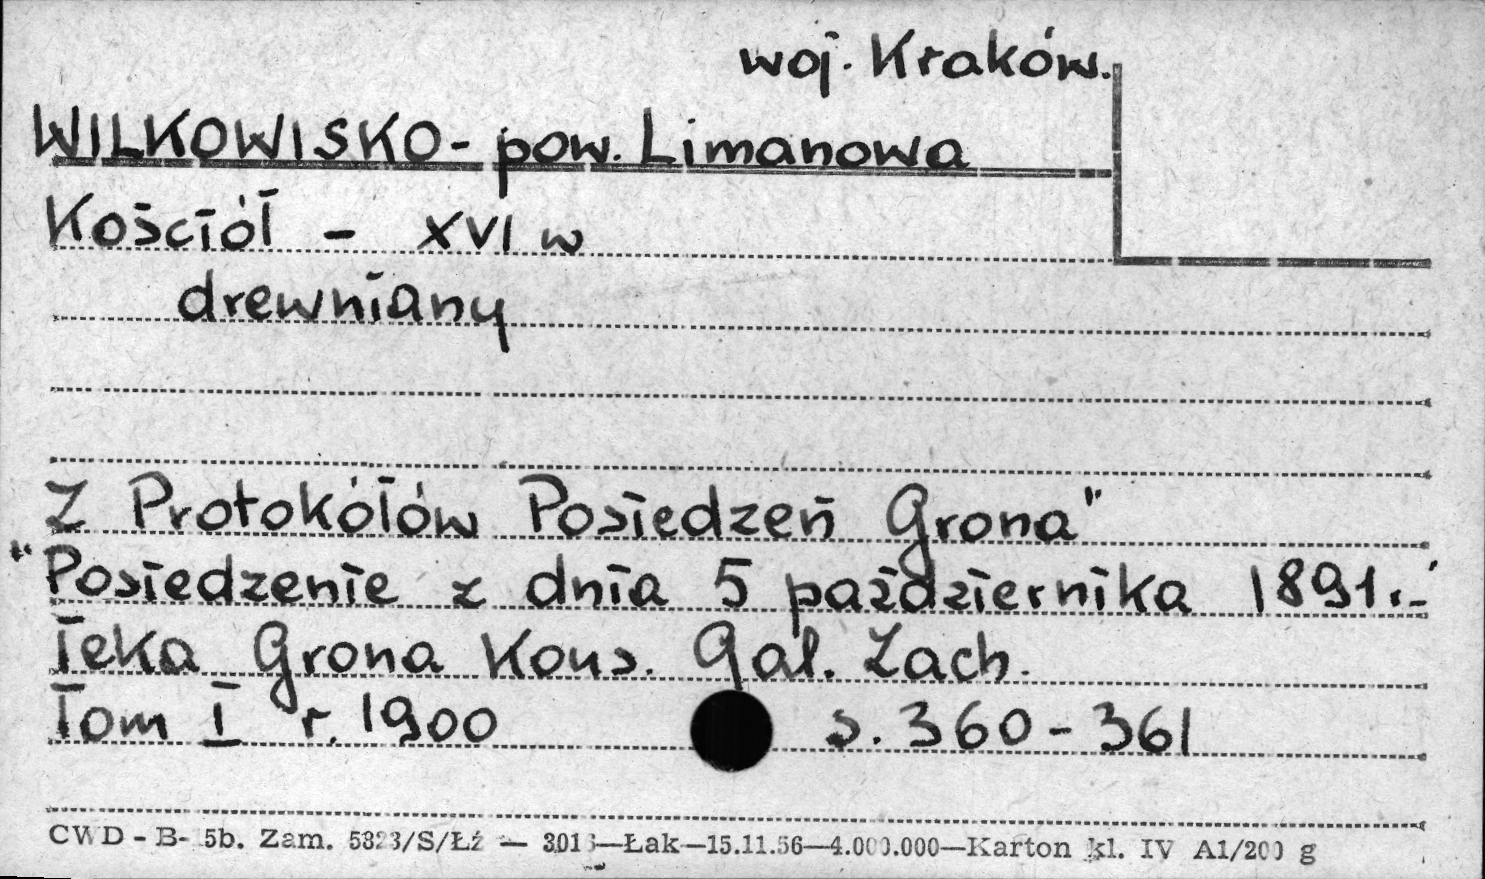 woj. Kraków.
WILKOWISKO - pow. Limanowa
Kościół - XVI w
drewniany
Z Protokółów Posiedzeń Grona"
"Posiedzenie z dnia 5 października 1891 r.-"
Teka Grona Kons. Gal. Zach.
Tom I r. 1900 s. 360-361
CWD - B- 5b. Zam. 5323/S/Łź — 3016—Łak—15.11.56—4.000.000—Karton kl. IV A1/200 g